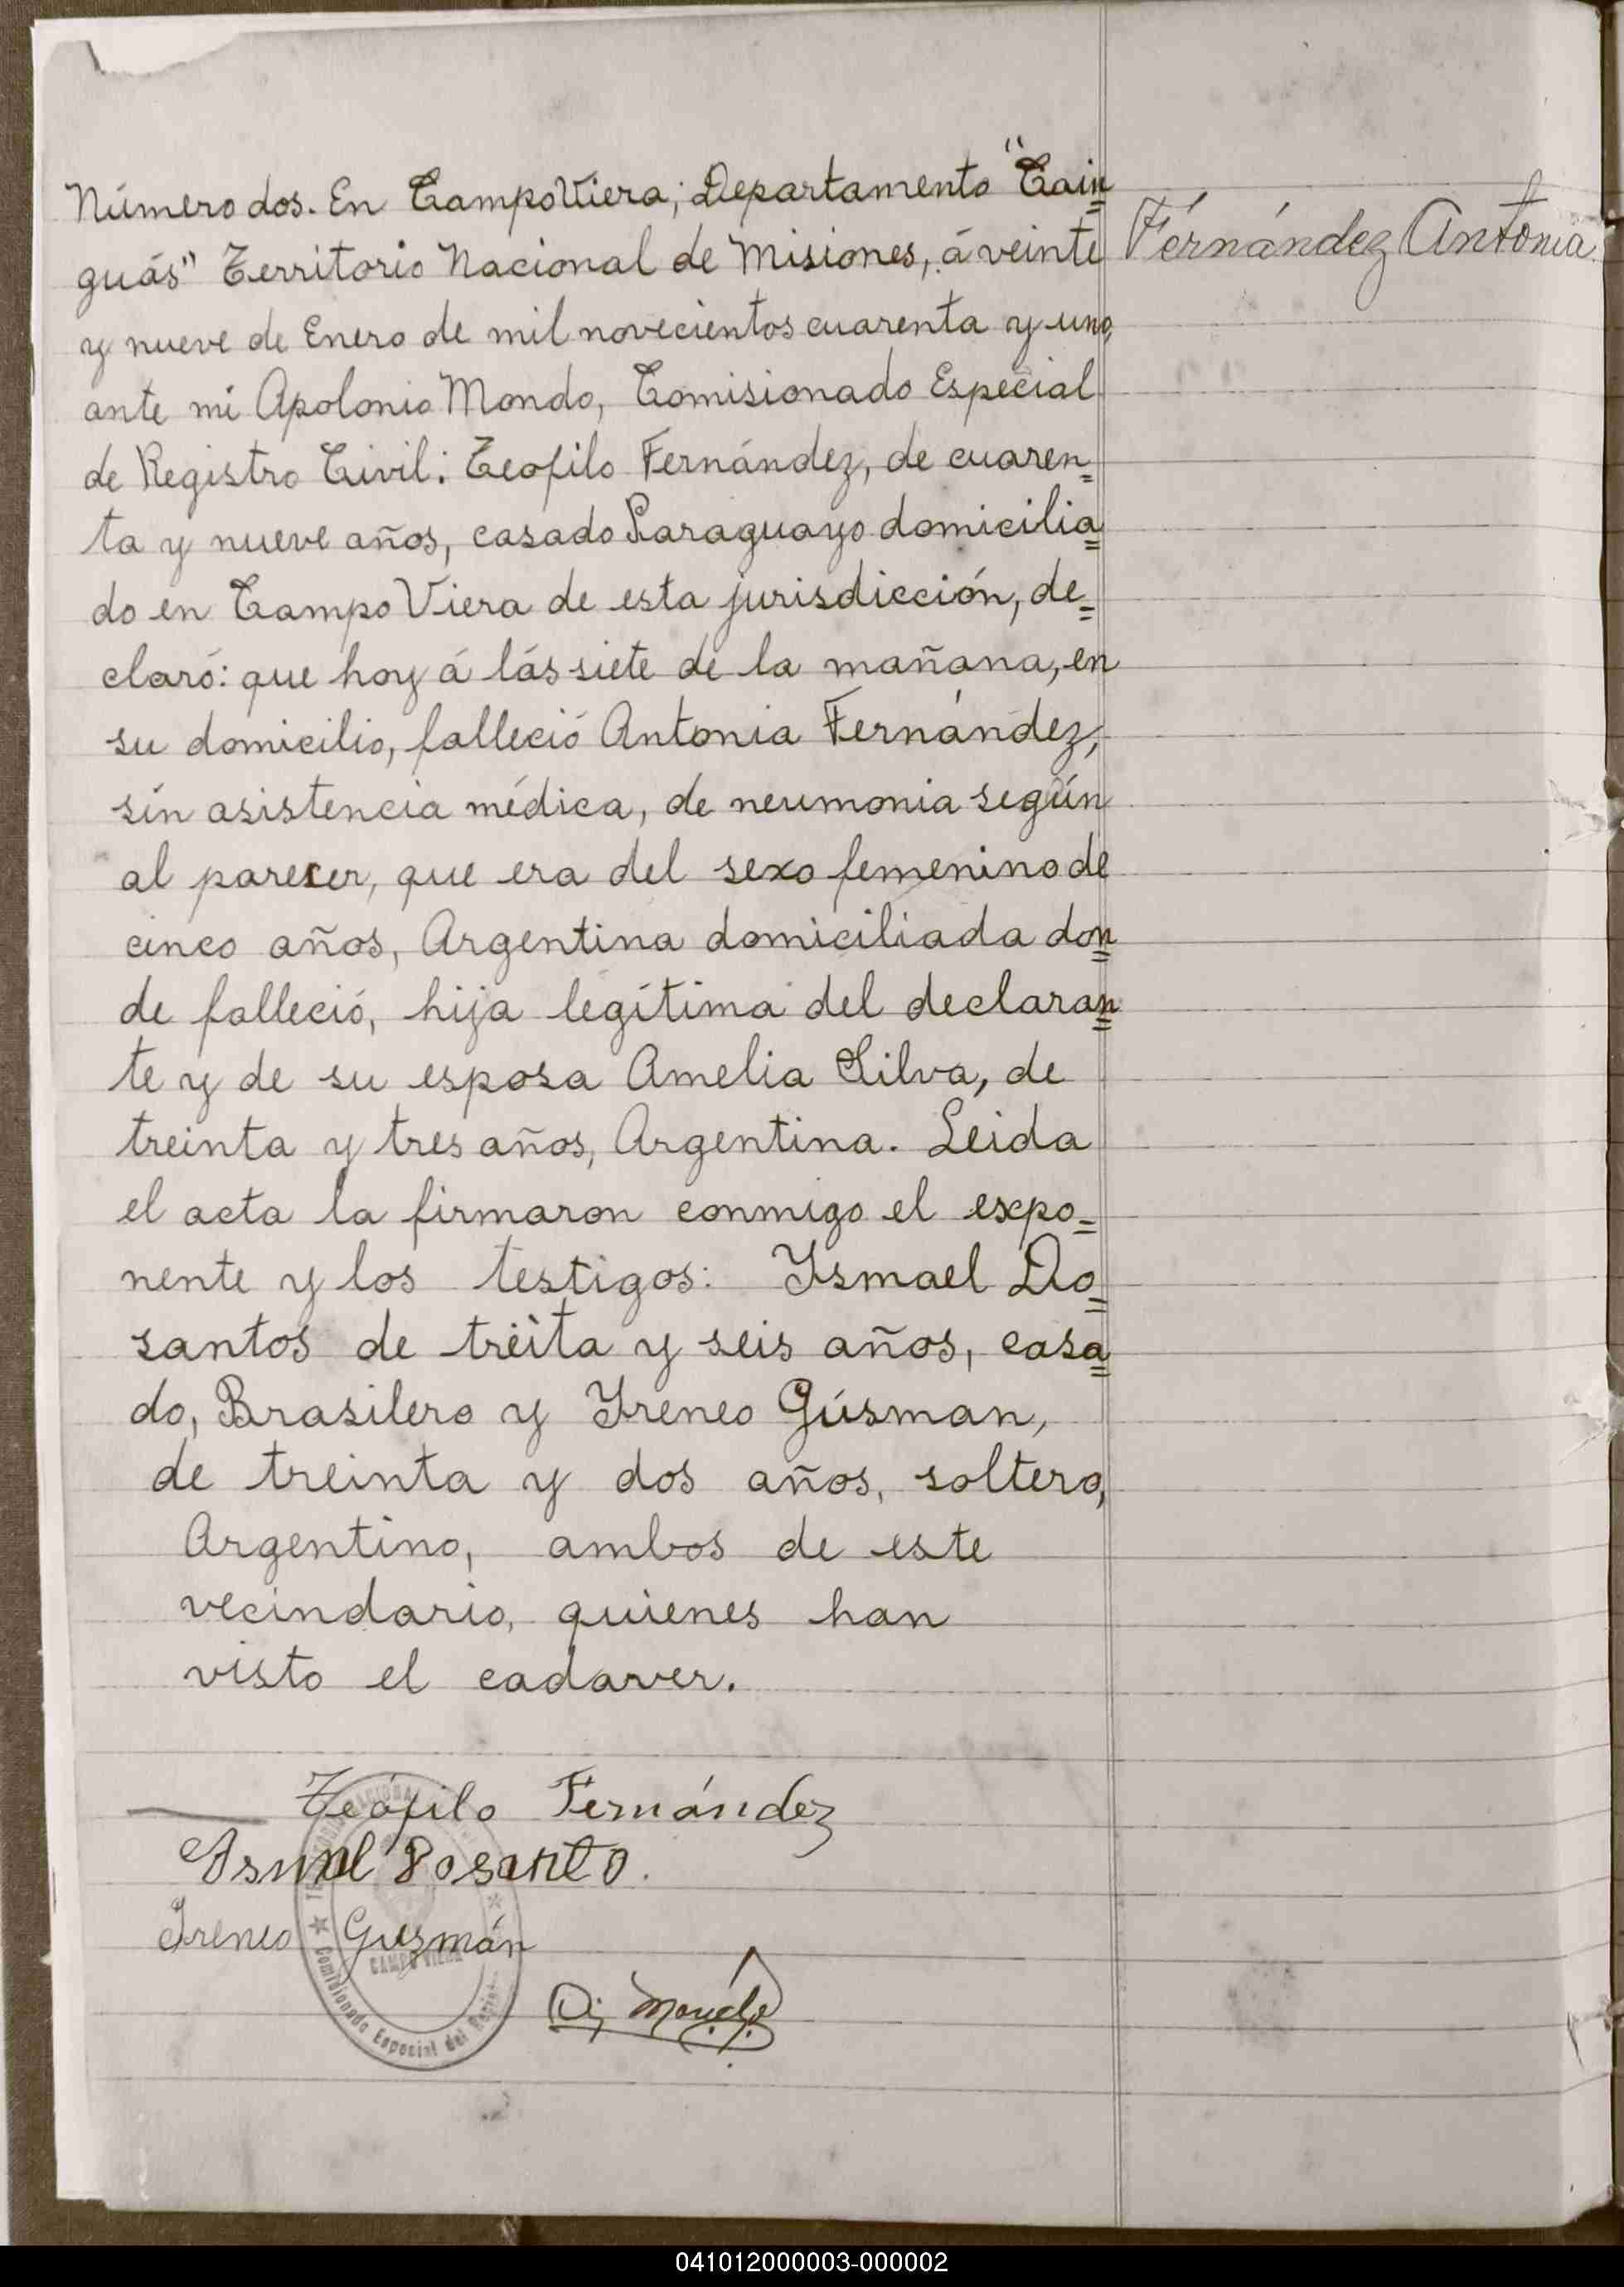 Número dos. En Campo Viera; Departamento "Cain=
guás" Territorio Nacional de Misiones, á veinte
Férnández Antonia
y nueve de Enero de mil novecientos cuarenta y uno,
ante mi Apolonio Mondo, Comisionado Especial
de Registro Civil: Teofilo Fernández, de cuaren=
ta y nueve años, casado Paraguayo domicilia=
do en Campo Viera de esta jurisdicción, de=
claró: que hoy á lás siete de la mañana, en
su domicilio, falleció Antonia Fernández,
sín asistencia médica, de neumonia según
al parecer, que era del sexo femenino de
cinco años, Argentina domiciliada don=
de falleció, hija legítima del declaran=
te y de su esposa Amelia Silva, de
treinta y tres años, Argentina. Leida
el acta la firmaron conmigo el expo=
nente y los testigos: Ysmael Do=
santos de treita y seis años, casa=
do, Brasilero y Yreneo Gúsman,
de treinta y dos años, soltero,
Argentino, ambos de este
vecindario, quienes han
visto el cadaver.
Teófilo Fernández
Ireneo Gusmán
CAMPO VIERA
Comisionado Especial del
041012000003-000002